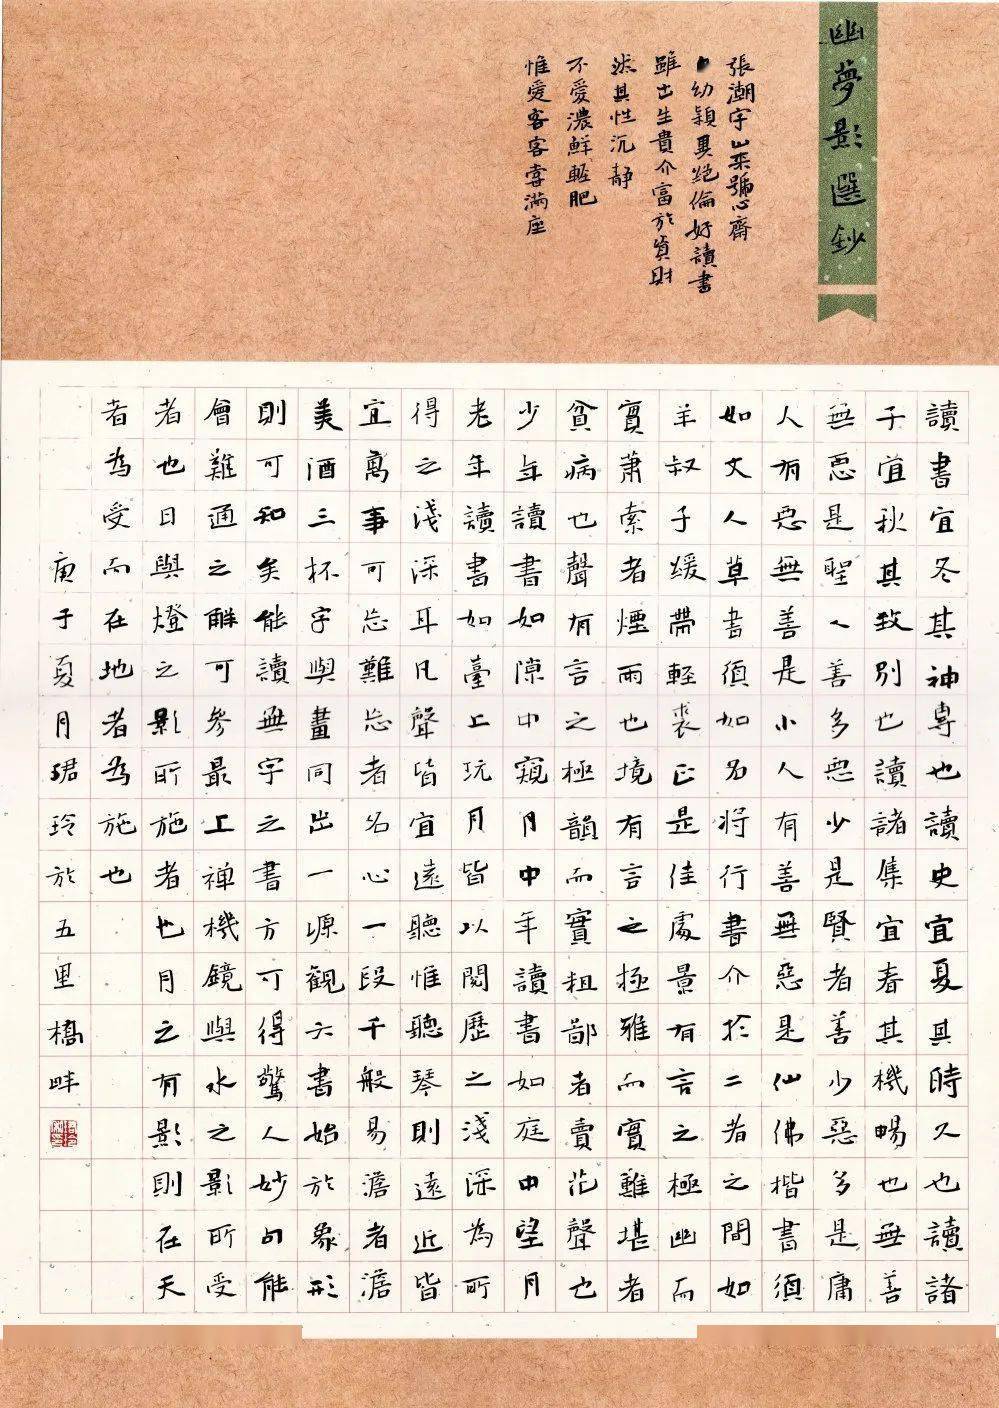 幽夢影選鈔
張潮字山来號心齋
幼穎異絕倫好讀書
雖出生貴介富於資財
然其性沉靜
不愛濃鮮輕肥
惟愛客客嘗滿座
讀書宜冬其神專也讀史宜夏其時久也讀諸
子宜秋其致別也讀諸集宜春其機暢也無善
無惡是聖人善多惡少是賢者善少惡多是庸
人有惡無善是小人有善無惡是仙佛楷書須
如文人草書須如名將行書介於二者之間如
羊叔子緩帶輕裘正是佳處景有言之極幽而
實蕭索者煙雨也境有言之極雅而實難堪者
貧病也聲有言之極韻而實粗鄙者賣花聲也
少年讀書如隙中窺月中年讀書如庭中望月
老年讀書如臺上玩月皆以閱歷之淺深為所
得之淺深耳凡聲皆宜遠聽惟聽琴則遠近皆
宜萬事可忘難忘者名心一段千般易澹者澹
美酒三杯字與畫同出一源觀六書始於象形
則可知矣能讀無字之書方可得驚人妙句能
會難通之解可參最上禪機鏡與水之影所受
者也日與燈之影所施者也月之有影則在天
者為受而在地者為施也
庚子夏月珺玲於五里橋畔